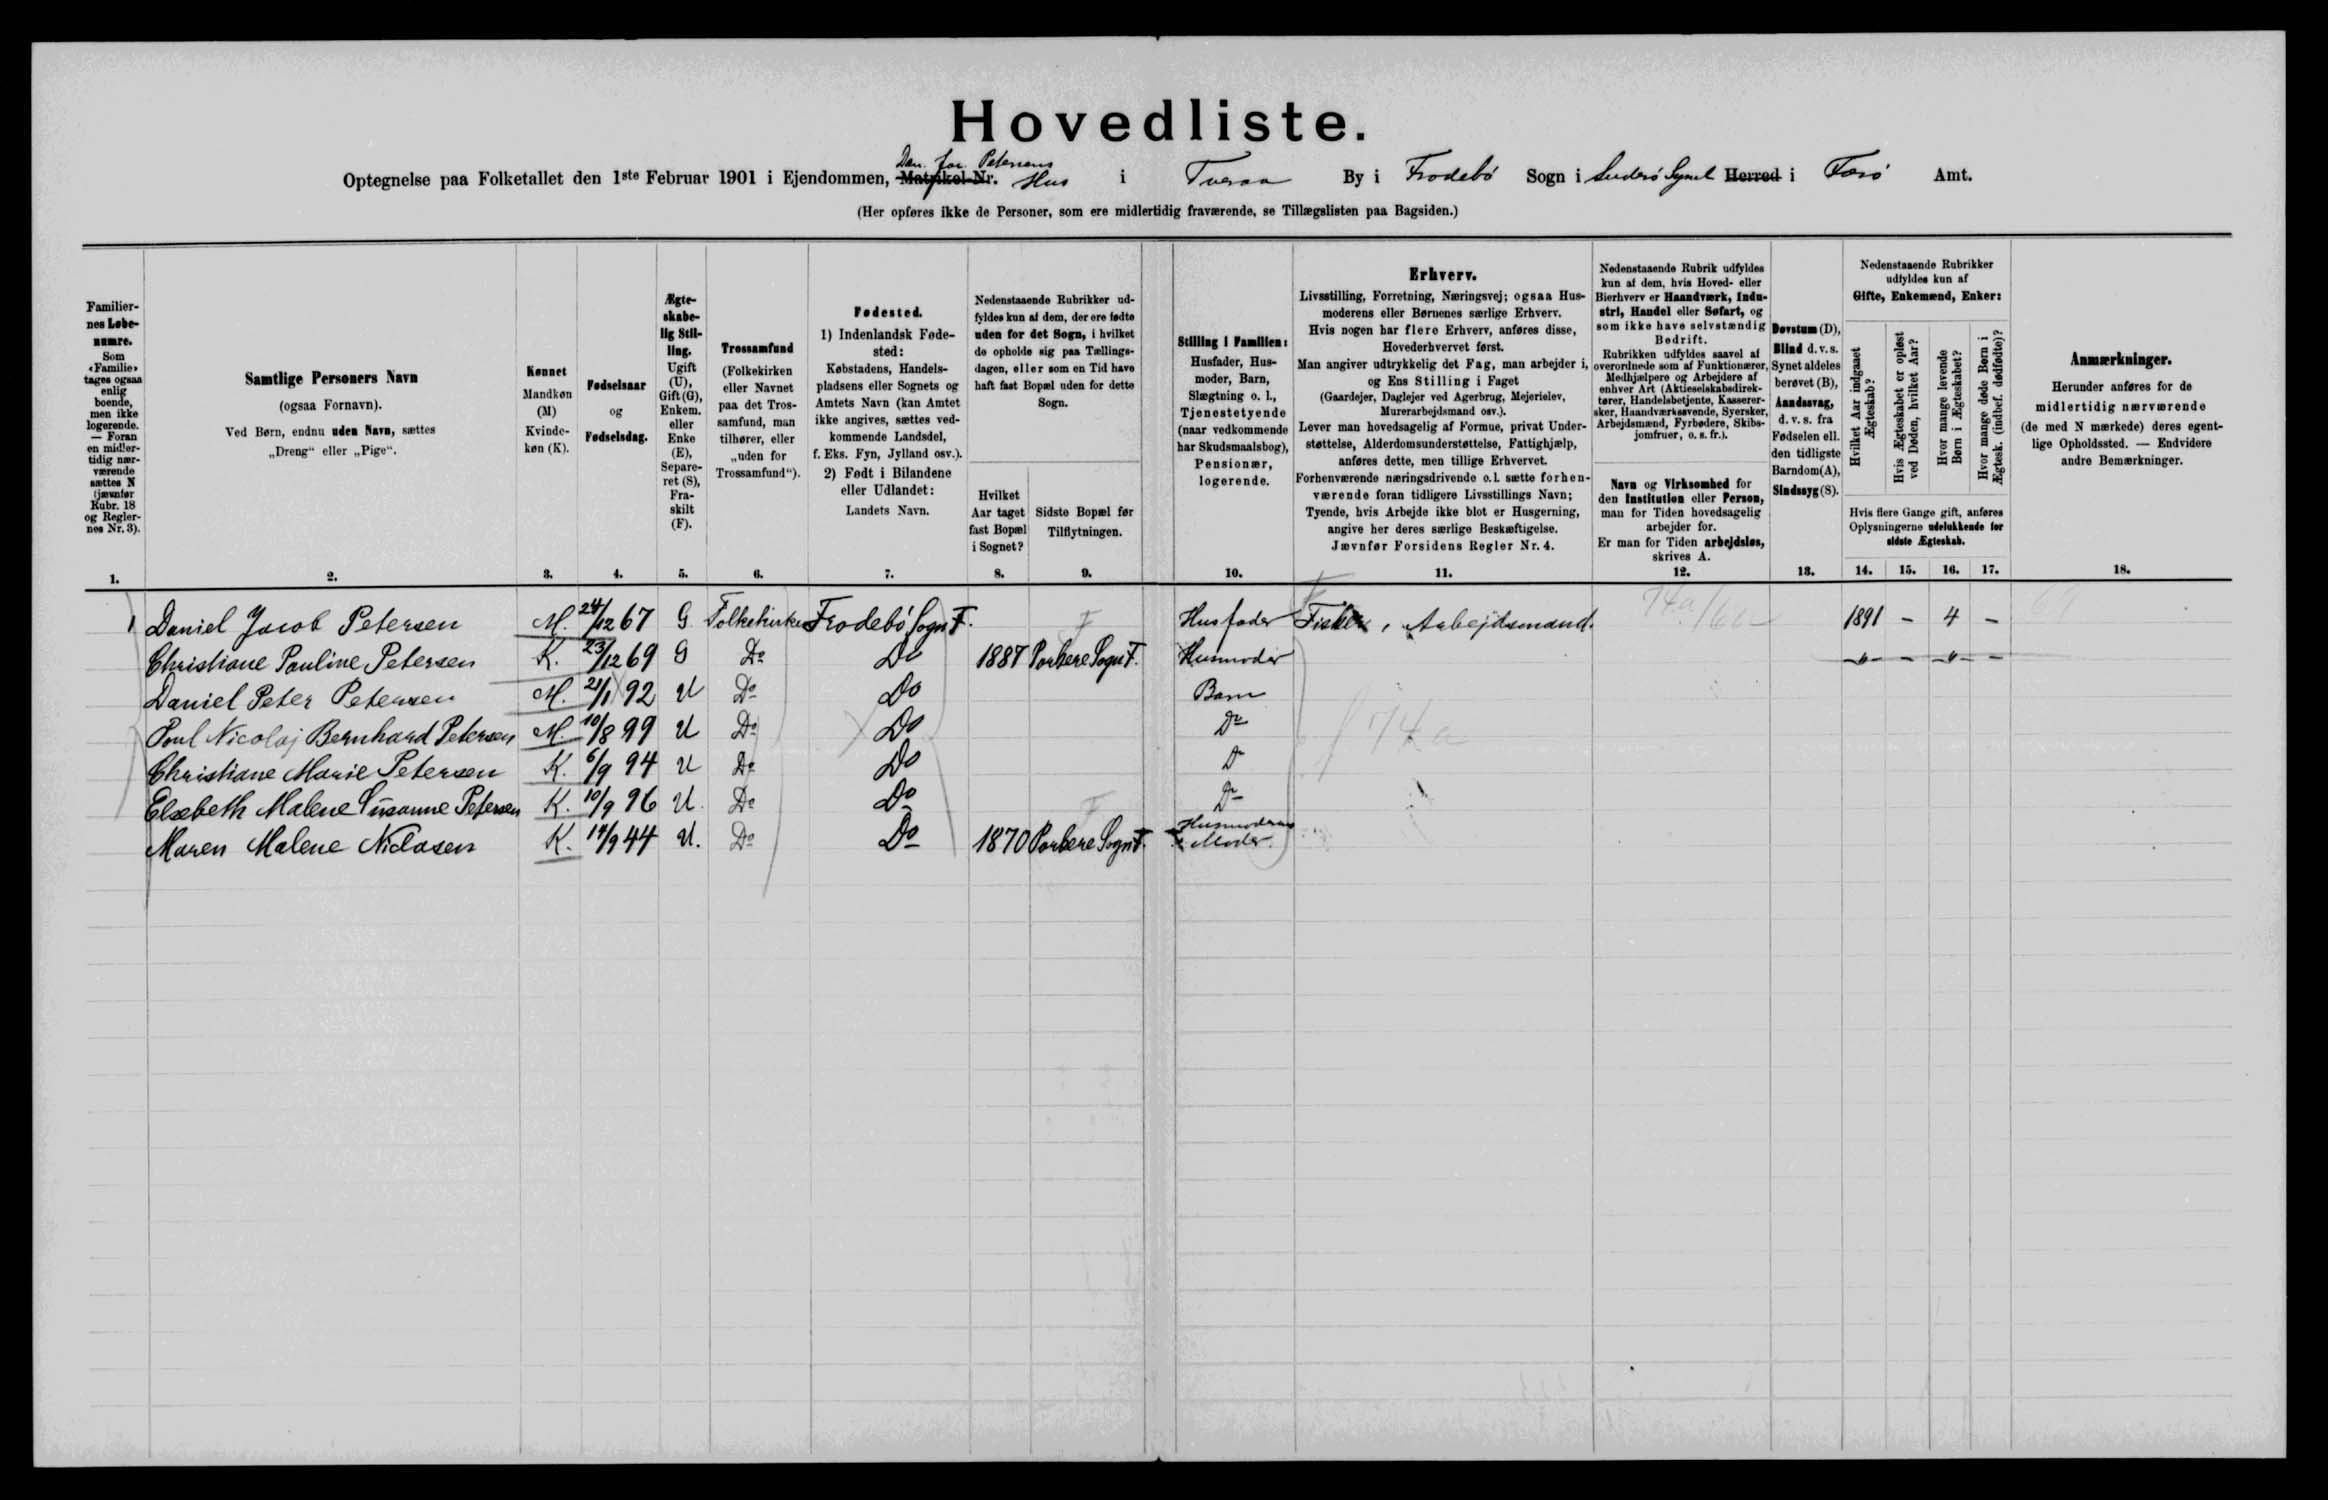 Hovedliste.
Optegnelse paa Folketallet den 1ste Februar 1901 i Ejendommen, Matrikel-Nr. Dan. Jac. Petersens Hus i Tveraa By i Frodebö Sogn i Suderö Syssel Herred i Færö Amt.
(Her opføres ikke de Personer, som ere midlertidig fraværende, se Tillægslisten paa Bagsiden.)
Familiernes Løbenumre. Som «Familie» tages ogsaa enlig boende, men ikke logerende. — Foran en midlertidig nærværende sættes N (jævnfør Rubr. 18 og Reglernes Nr. 3).
Samtlige Personers Navn (ogsaa Fornavn). Ved Børn, endnu uden Navn, sættes „Dreng“ eller „Pige“.
Kønnet Mandkøn (M) Kvindekøn (K).
Fødselsaar og Fødselsdag.
Ægteskabelig Stilling. Ugift (U), Gift (G), Enkem. eller Enke (E), Separeret (S), Fraskilt (F).
Trossamfund (Folkekirken eller Navnet paa det Trossamfund, man tilhører, eller „uden for Trossamfund“).
Fødested. 1) Indenlandsk Fødested: Købstadens, Handelspladsens eller Sognets og Amtets Navn (kan Amtet ikke angives, sættes vedkommende Landsdel, f. Eks. Fyn, Jylland osv.). 2) Født i Bilandene eller Udlandet: Landets Navn.
Nedenstaaende Rubrikker udfyldes kun af dem, der ere fødte uden for det Sogn, i hvilket de opholde sig paa Tællingsdagen, eller som en Tid have haft fast Bopæl uden for dette Sogn.
Hvilket Aar taget fast Bopæl i Sognet?
Sidste Bopæl før Tilflytningen.
Stilling i Familien: Husfader, Husmoder, Barn, Slægtning o. l., Tjenestetyende (naar vedkommende har Skudsmaalsbog), Pensionær, logerende.
Erhverv.
Livsstilling, Forretning, Næringsvej; ogsaa Husmoderens eller Børnenes særlige Erhverv.
Hvis nogen har flere Erhverv, anføres disse, Hovederhvervet først.
Man angiver udtrykkelig det Fag, man arbejder i, og Ens Stilling i Faget
(Gaardejer, Daglejer ved Agerbrug, Mejerielev, Murerarbejdsmand osv.).
Lever man hovedsagelig af Formue, privat Understøttelse, Alderdomsunderstøttelse, Fattighjælp, anføres dette, men tillige Erhvervet.
Forhenværende næringsdrivende o. l. sætte forhenværende foran tidligere Livsstillings Navn;
Tyende, hvis Arbejde ikke blot er Husgerning, angive her deres særlige Beskæftigelse.
Jævnfør Forsidens Regler Nr. 4.
Nedenstaaende Rubrik udfyldes kun af dem, hvis Hoved- eller Bierhverv er Haandværk, Industri, Handel eller Søfart, og som ikke have selvstændig Bedrift.
Rubrikken udfyldes saavel af overordnede som af Funktionærer, Medhjælpere og Arbejdere af enhver Art (Aktieselskabsdirektører, Handelsbetjente, Kasserersker, Haandværkssvende, Syersker, Arbejdsmænd, Fyrbødere, Skibsjomfruer, o. s. fr.).
Navn og Virksomhed for den Institution eller Person, man for Tiden hovedsagelig arbejder for.
Er man for Tiden arbejdsløs, skrives A.
Døvstum (D), Blind d. v. s. Synet aldeles berøvet (B), Aandssvag, d. v. s. fra Fødselen ell. den tidligste Barndom (A), Sindssyg (S).
Nedenstaaende Rubrikker udfyldes kun af Gifte, Enkemænd, Enker:
Hvilket Aar indgaaet Ægteskab?
Hvis Ægteskabet er opløst ved Døden, hvilket Aar?
Hvor mange levende Børn i Ægteskabet?
Hvor mange døde Børn i Ægtesk. (indbef. dødfødte)?
Hvis flere Gange gift, anføres Oplysningerne udelukkende for sidste Ægteskab.
Anmærkninger.
Herunder anføres for de midlertidig nærværende (de med N mærkede) deres egentlige Opholdssted. — Endvidere andre Bemærkninger.
1. 2. 3. 4. 5. 6. 7. 8. 9. 10. 11. 12. 13. 14. 15. 16. 17. 18.
1 Daniel Jacob Petersen M. 24/12 67 G Folkekirken Frodebö Sogn F. Husfader Fisker, Arbejdsmand. 74a 1891 - 4 -
Christiane Pauline Petersen K. 23/12 69 G Do Do 1887 Porkere Sogn F. Husmoder -"- - -"- -
Daniel Peter Petersen M. 21/1 92 U Do Do Barn
Poul Nicolaj Bernhard Petersen M. 10/8 99 U Do Do Do 74a
Christiane Marie Petersen K. 6/9 94 U Do Do D
Elsebeth Malene Susanne Petersen K. 10/9 96 U. Do Do Do
Maren Malene Niclasen K. 14/9 44 U. Do Do 1870 Porkere Sogn F. Husmoderens Moder.